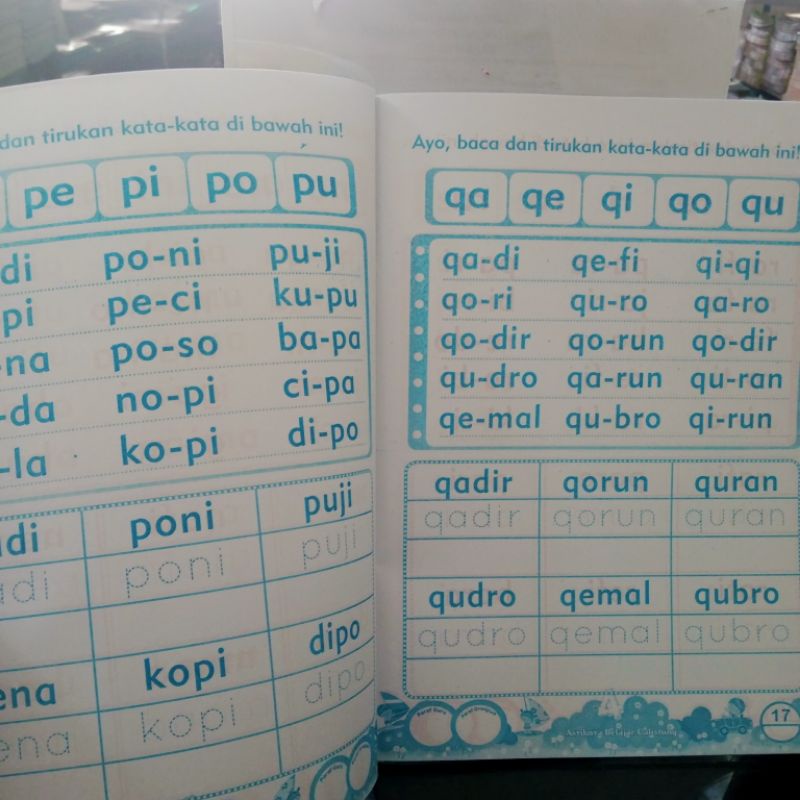 dan tirukan kata-kata di bawah ini!
pe pi po pu
di po-ni pu-ji
pi pe-ci ku-pu
-na po-so ba-pa
-da no-pi ci-pa
-la ko-pi di-po
adi poni puji
adi poni puji
ena kopi dipo
ena kopi dipo
Ayo, baca dan tirukan kata-kata di bawah ini!
qa qe qi qo qu
qa-di qe-fi qi-qi
qo-ri qu-ro qa-ro
qo-dir qo-run qo-dir
qu-dro qa-run qu-ran
qe-mal qu-bro qi-run
qadir qorun quran
qadir qorun quran
qudro qemal qubro
qudro qemal qubro
Paraf Guru Paraf Orangtua
17